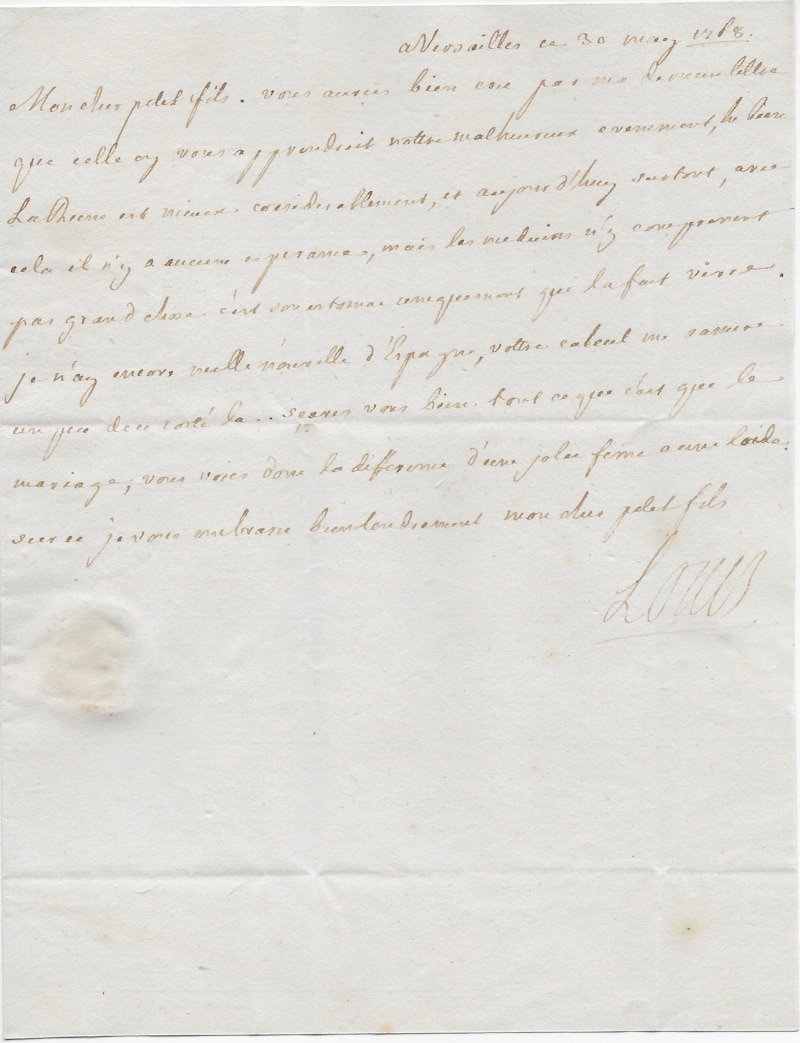 a Versailles ce 30 may 1768.
Mon cher petit fils. vous auriés bien cru par ma derniere lettre
que celle cy vous apprendroit nottre malheureux evenement,
La Reine est mieux considerablement, et aujourd'huy surtout, avec
cela il n'y a aucune esperance, mais les medecins n'y comprenent
pas grand chose c'est son estomac uniquement qui la fait vivre.
je n'ay encore nulle nouvelle d'Espagne, vottre calcul me rassure
un peu de ce costé la .. sçavés vous bien tout ce que c'est que le
mariage, vous voiés donc la difference d'une jolie feme a une laide.
sur ce je vous embrasse bien tendrement mon cher petit fils
Louis